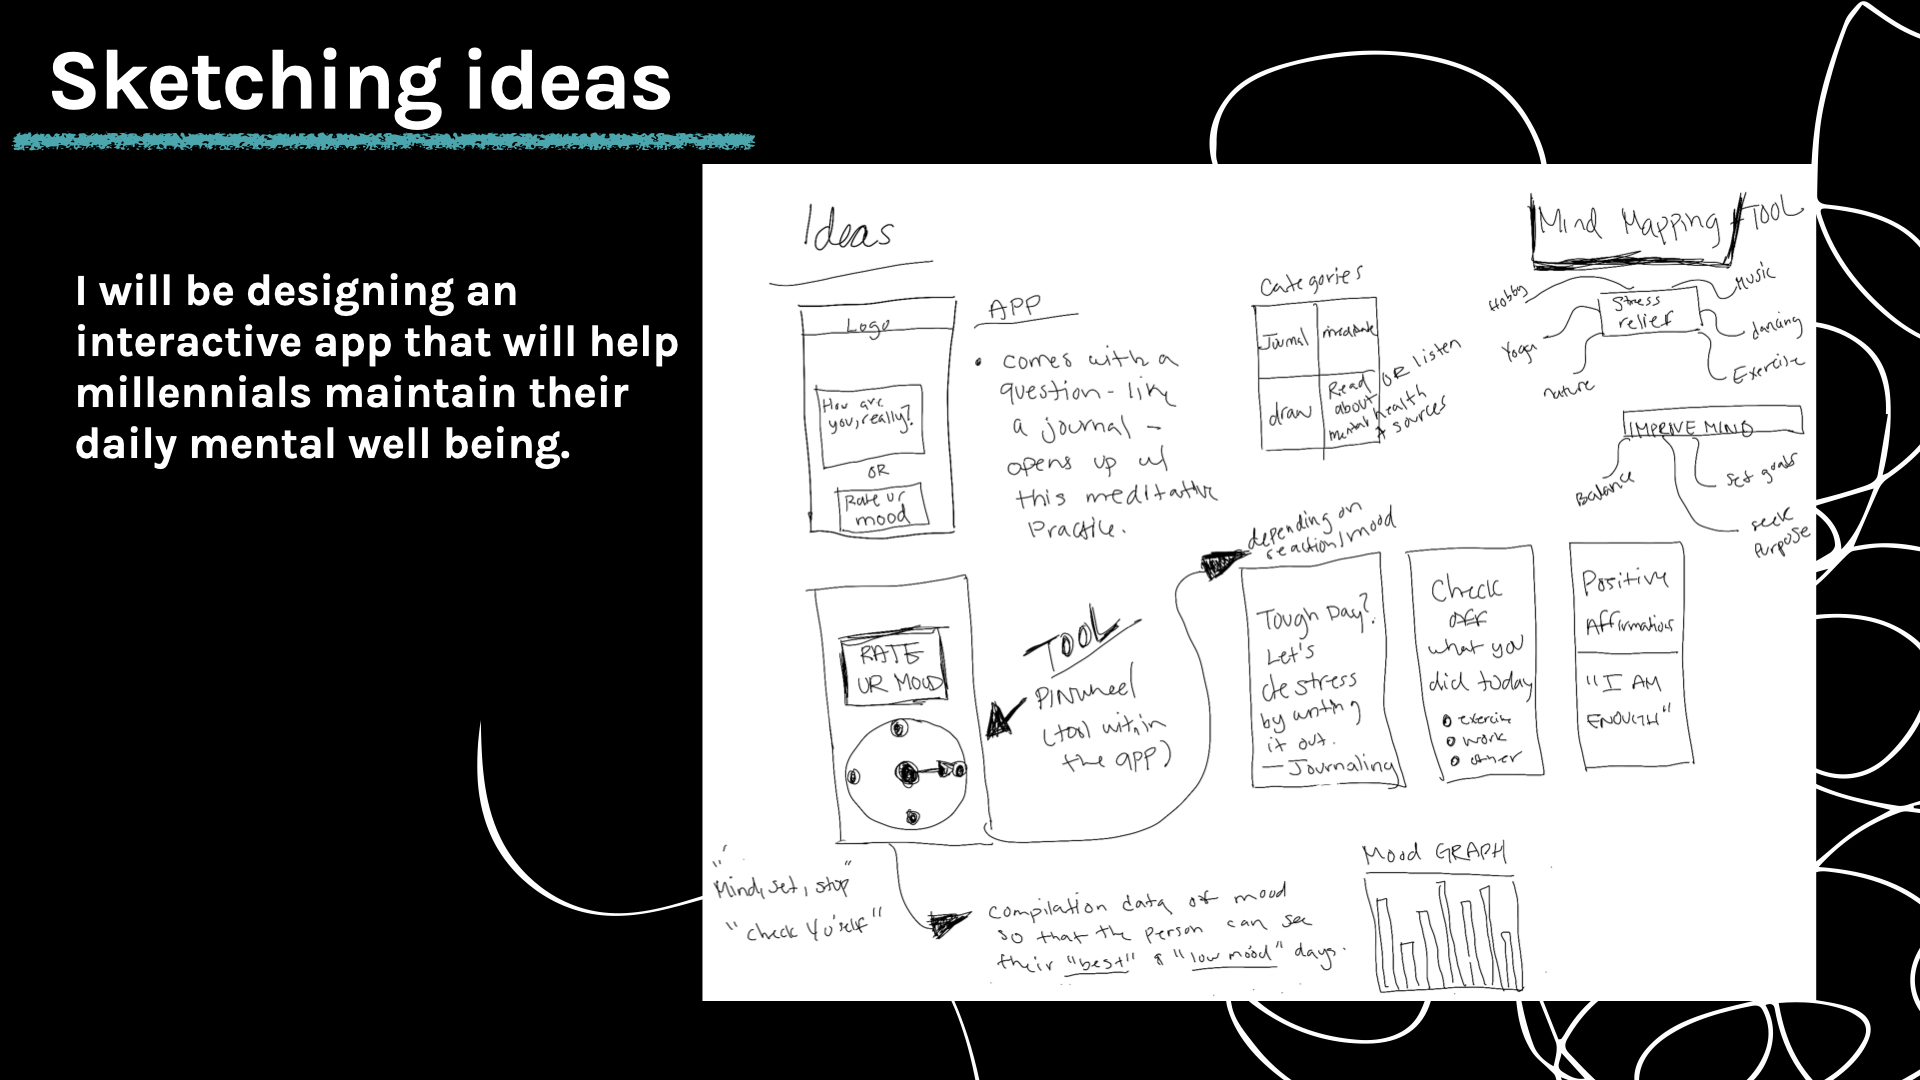 Sketching ideas
I will be designing an
interactive app that will help
millennials maintain their
daily mental well being.
Ideas
Logo
How are
you, really?
OR
Rate ur
mood
APP
• comes with a
question - like
a journal -
opens up w/
this meditative
Practice.
Categories
Journal
meditate
draw
Read
about
mental health
+ sources
OR listen
Mind Mapping TOOL
Stress
relief
Hobby
Yoga
nature
Music
dancing
Exercise
IMPROVE MIND
Balance
Set goals
seek
Purpose
RATE
UR MOOD
TOOL
PINwheel
(tool within
the app)
depending on
reaction/mood
Tough Day?
Let's
de stress
by writing
it out.
— Journaling
Check
off
what you
did today
exercise
work
other
Positive
Affirmations
"I AM
ENOUGH"
"Mind, set, stop"
"check Yo'self"
compilation data of mood
so that the person can see
their "best" & "low mood" days.
Mood GRAPH